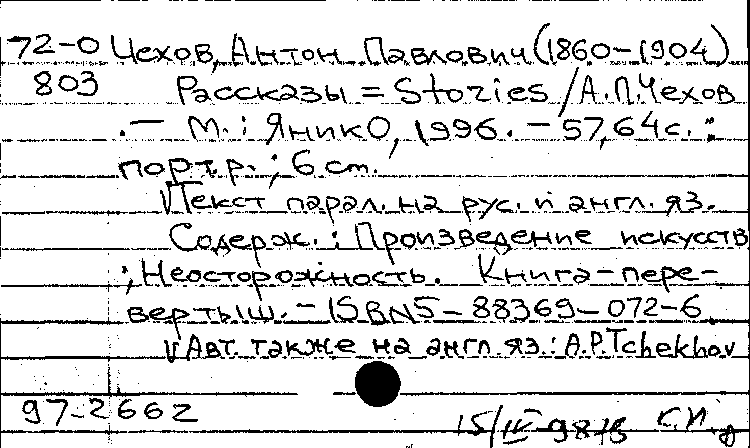 72-0 Чехов, Антон Павлович (1860-1904)
803 Рассказы = Stories / А.П. Чехов
. — М. : ЯникО, 1996. — 57,64 с. :
портр. ; 6 cm.
√Текст парал. на рус. и англ. яз.
Содерж. : Произведение искусств
; Неосторожность. Книга-пере-
вертыш. — ISBN 5-88369-072-6
√Авт. также на англ. яз. : A.P. Tchekhov
97-2662
15/IV-98